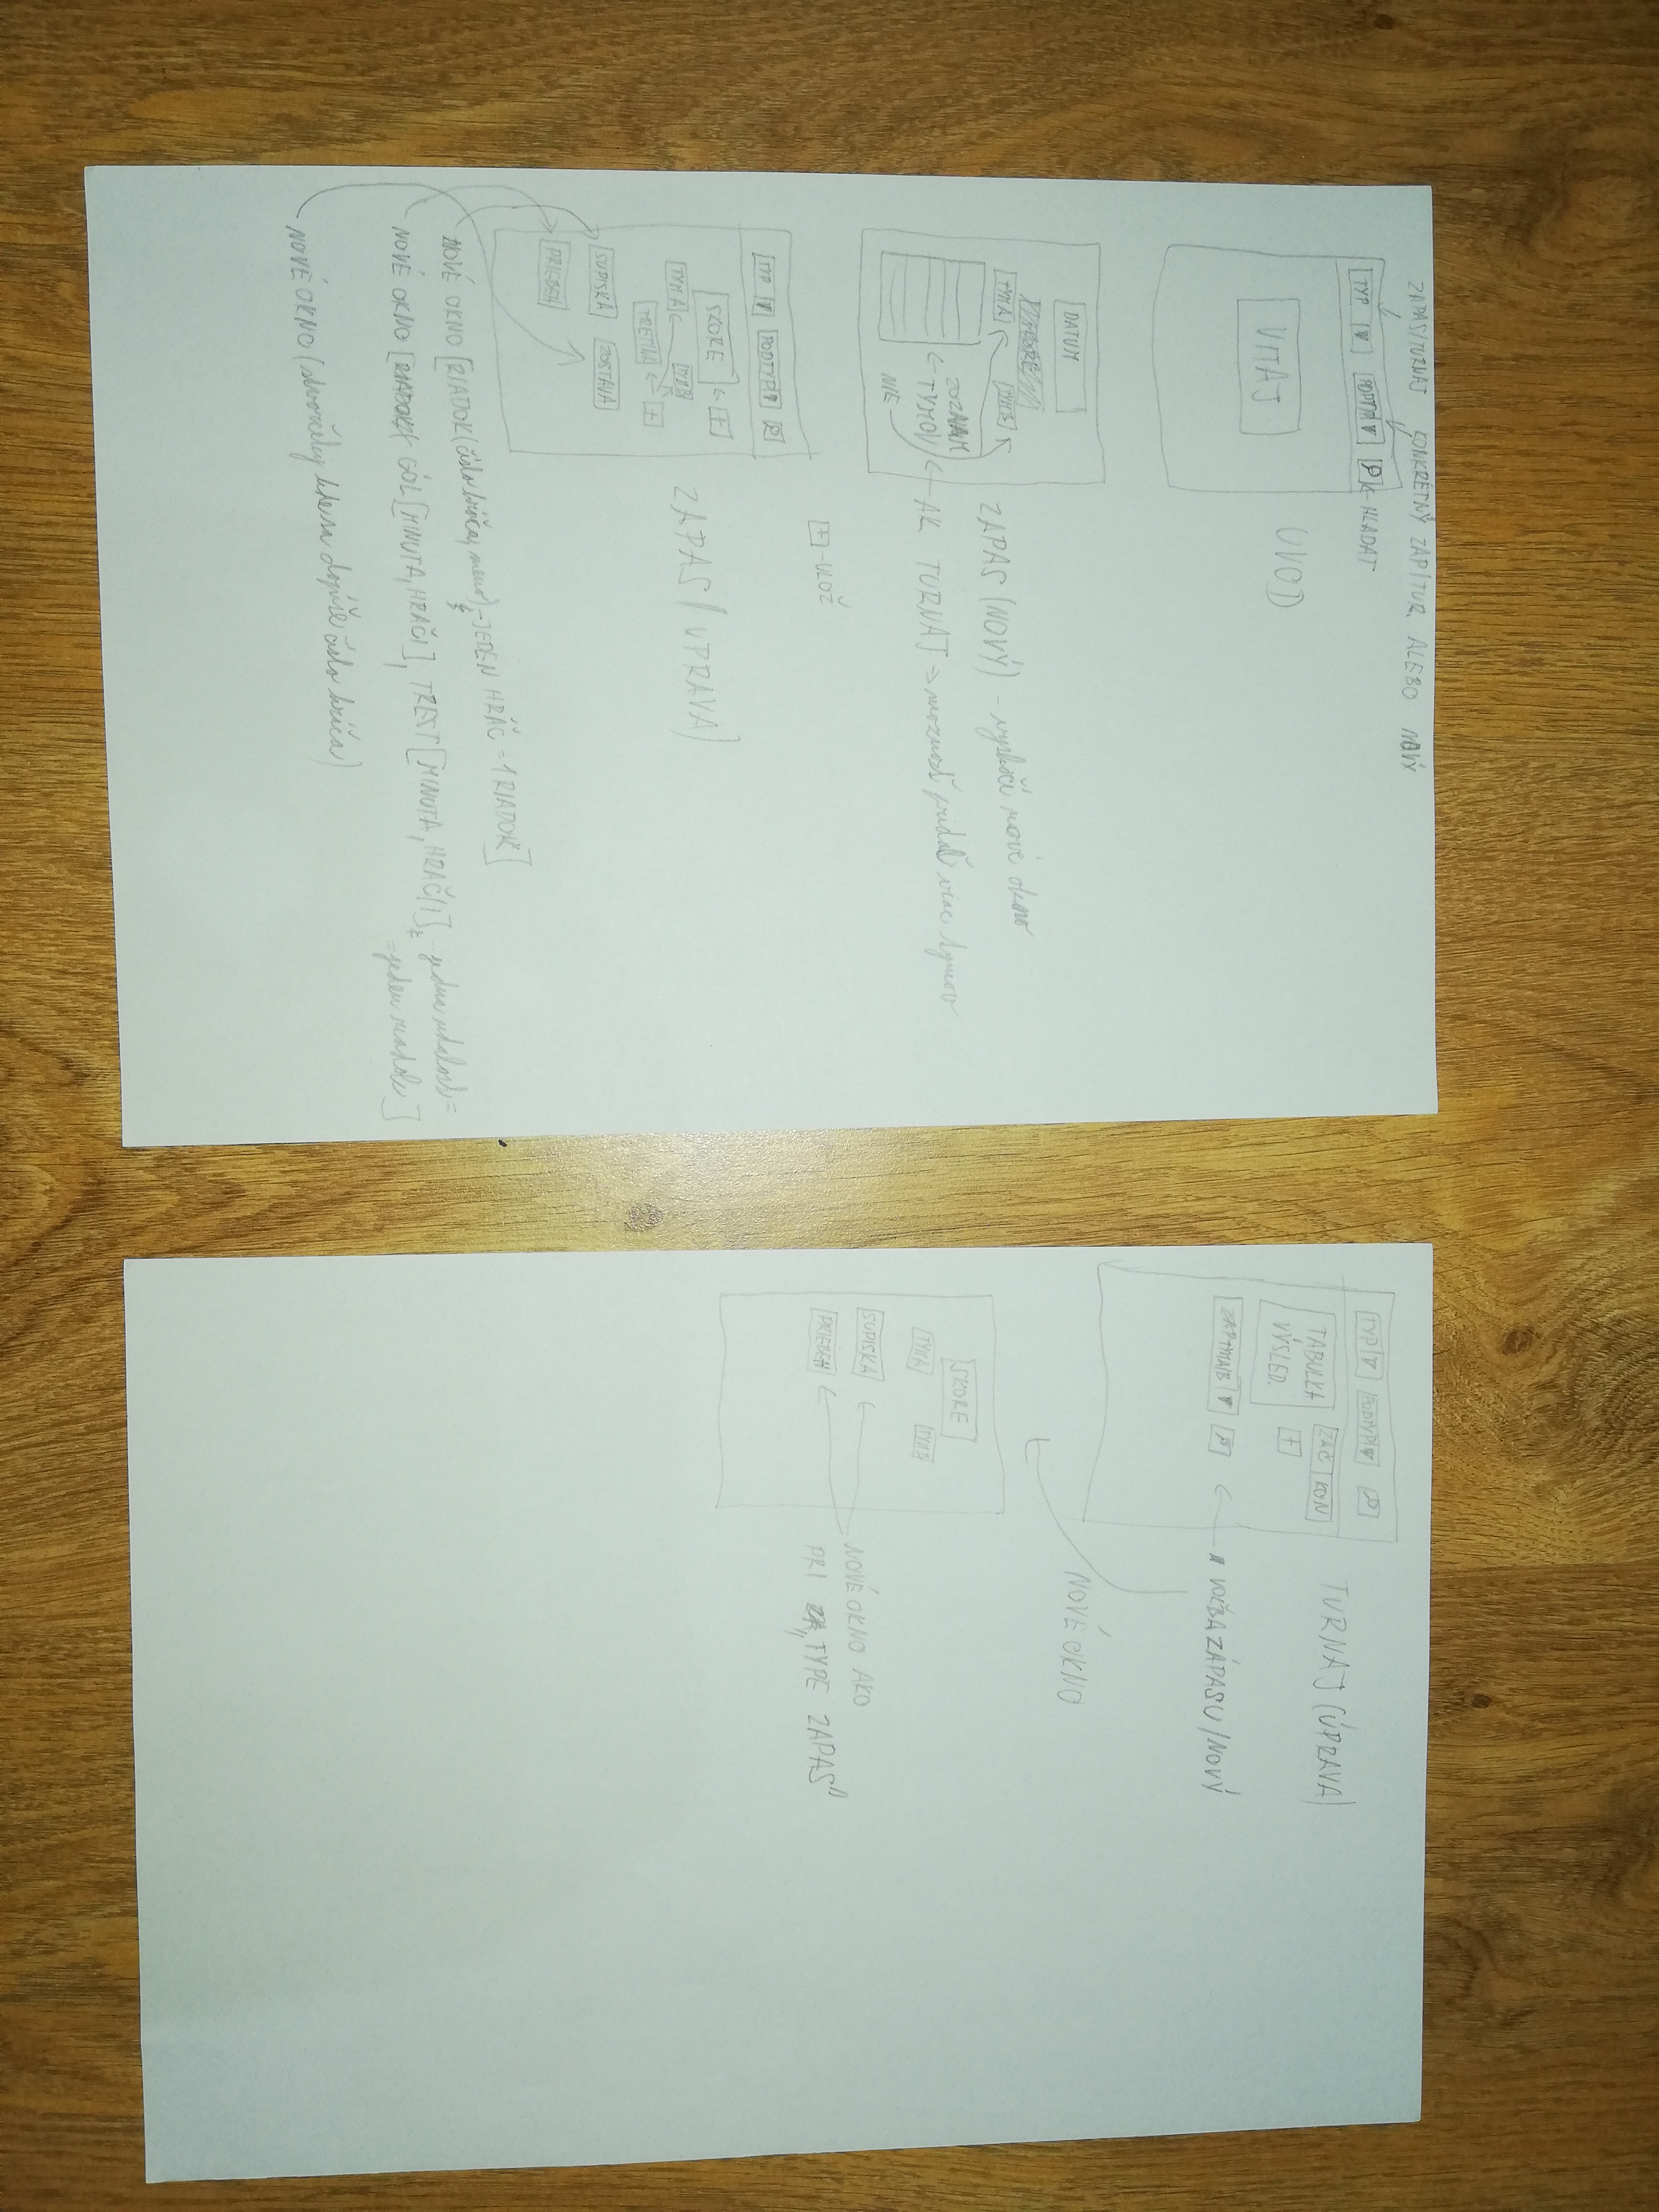 ZÁPAS/TURNAJ KONKRÉTNY ZÁP/TUR. ALEBO NOVÝ
TYP PODTYP HĽADAŤ
VITAJ
ÚVOD
DATUM
TYM A TYM B
ZOZNAM
TÝMOV
NIE
ZAPAS (NOVÝ) - vyskočí nové okno
AK TURNAJ => možnosť pridať viac týmov
+ - ULOŽ
TYP PODTYP
SKORE +
TYM A TYM B
TRETINA +
SUPISKA ZOSTAVA
PRIEBEH
ZAPAS (UPRAVA)
NOVÉ OKNO [RIADOK (číslo hráča, meno) - JEDEN HRÁČ = 1 RIADOK]
NOVÉ OKNO [GÓL [MINUTA, HRÁČI], TREST [MINUTA, HRÁČ(I)] - jedna udalosť =
= jeden riadok]
NOVÉ OKNO (štvorčeky kam dopíše číslo hráča)
TYP PODTYP
TABULKA
VÝSLED.
ZAČ KON
+
ZAPTYMAB
TURNAJ (ÚPRAVA)
VOĽBA ZÁPASU/NOVÝ
NOVÉ OKNO
SKORE
TYM A TYM B
SUPISKA
PRIEBEH
NOVÉ OKNO AKO
PRI „TYPE ZAPAS"